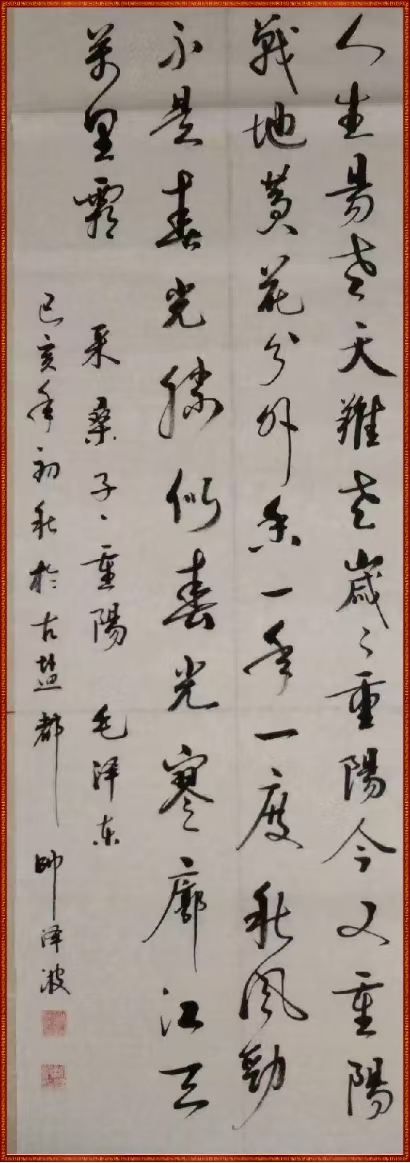 人生易老天難老嵗々重陽今又重陽
戰地黄花分外香一年一度秋風勁
不是春光勝似春光寥廓江天
萬里霜
采桑子、重陽 毛泽东
己亥年初秋於古盐都 帅泽波